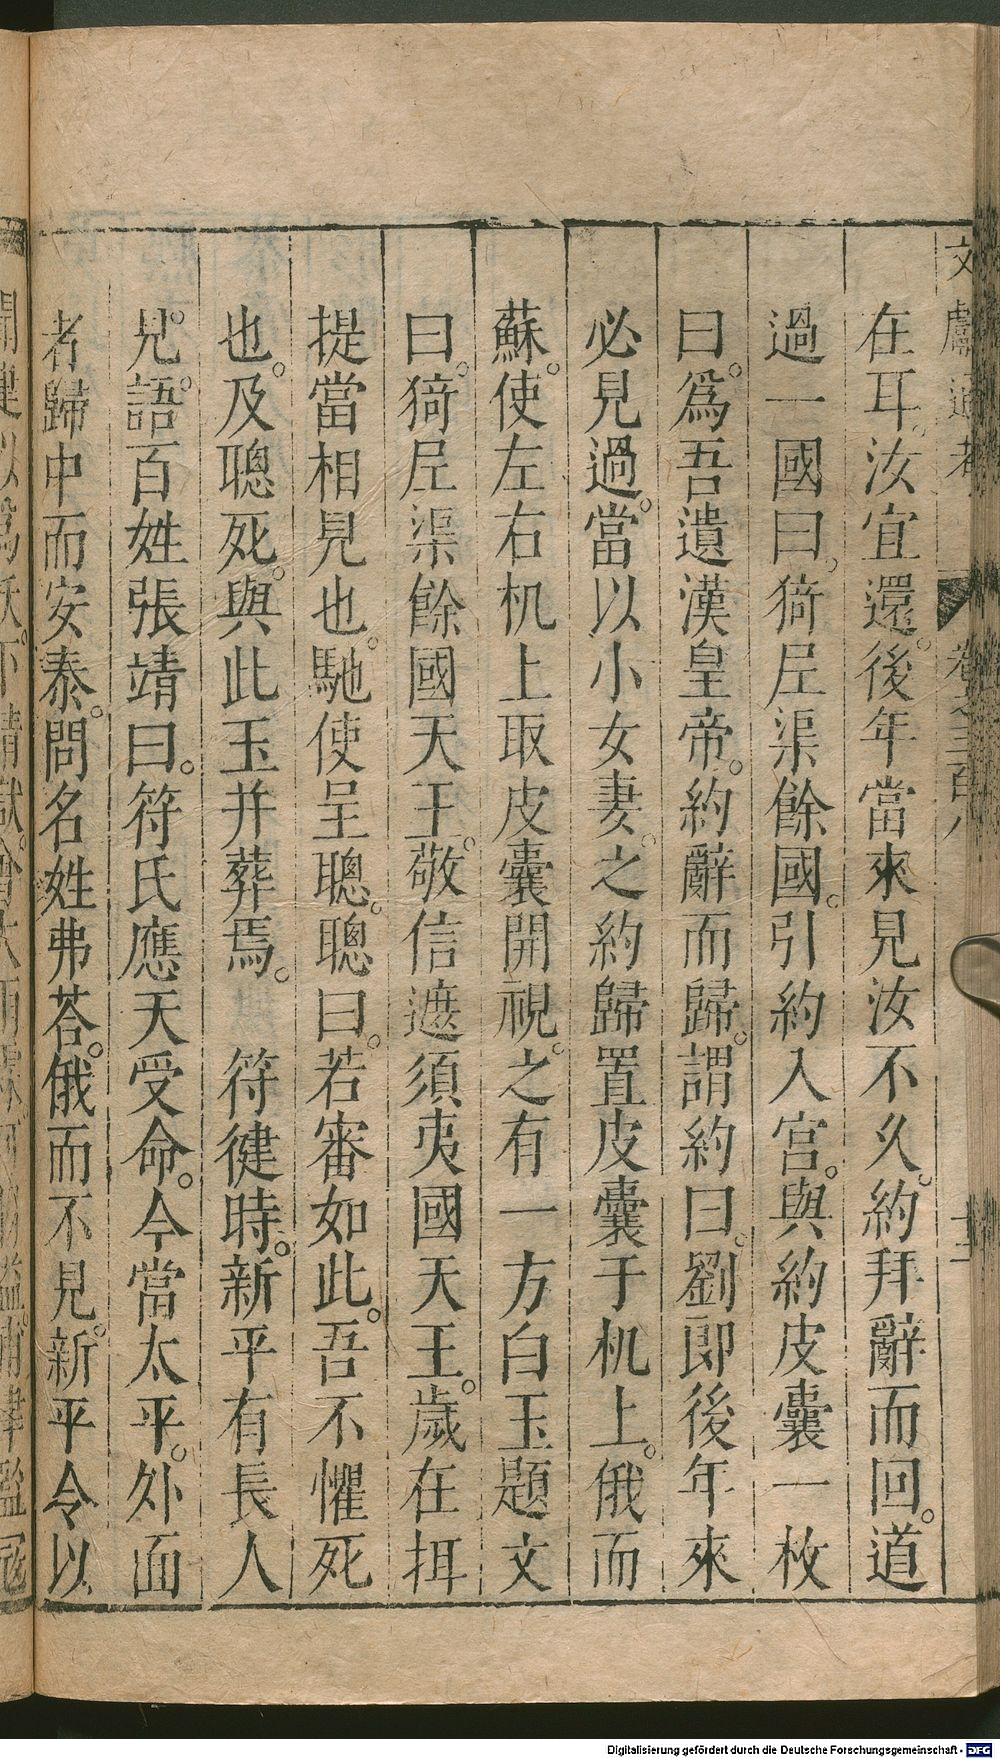 文獻通考 卷之三百八 十二
在耳汝宜還後年當來見汝不久約拜辭而回道
過一國曰猗𡰱渠餘國引約入宫與約皮囊一枚
曰爲吾遺漢皇帝約辭而歸謂約曰劉郎後年來
必見過當以小女妻之約歸置皮囊于机上俄而
蘇使左右机上取皮囊開視之有一方白玉題文
曰猗𡰱渠餘國天王敬信遮須夷國天王歲在挕
提當相見也馳使呈聰聰曰若審如此吾不懼死
也及聰死與此玉并葬焉 符健時新平有長人
見語百姓張靖曰符氏應天受命今當太平外面
者歸中而安泰問名姓弗荅俄而不見新平令以
Digitalisierung gefördert durch die Deutsche Forschungsgemeinschaft - DFG